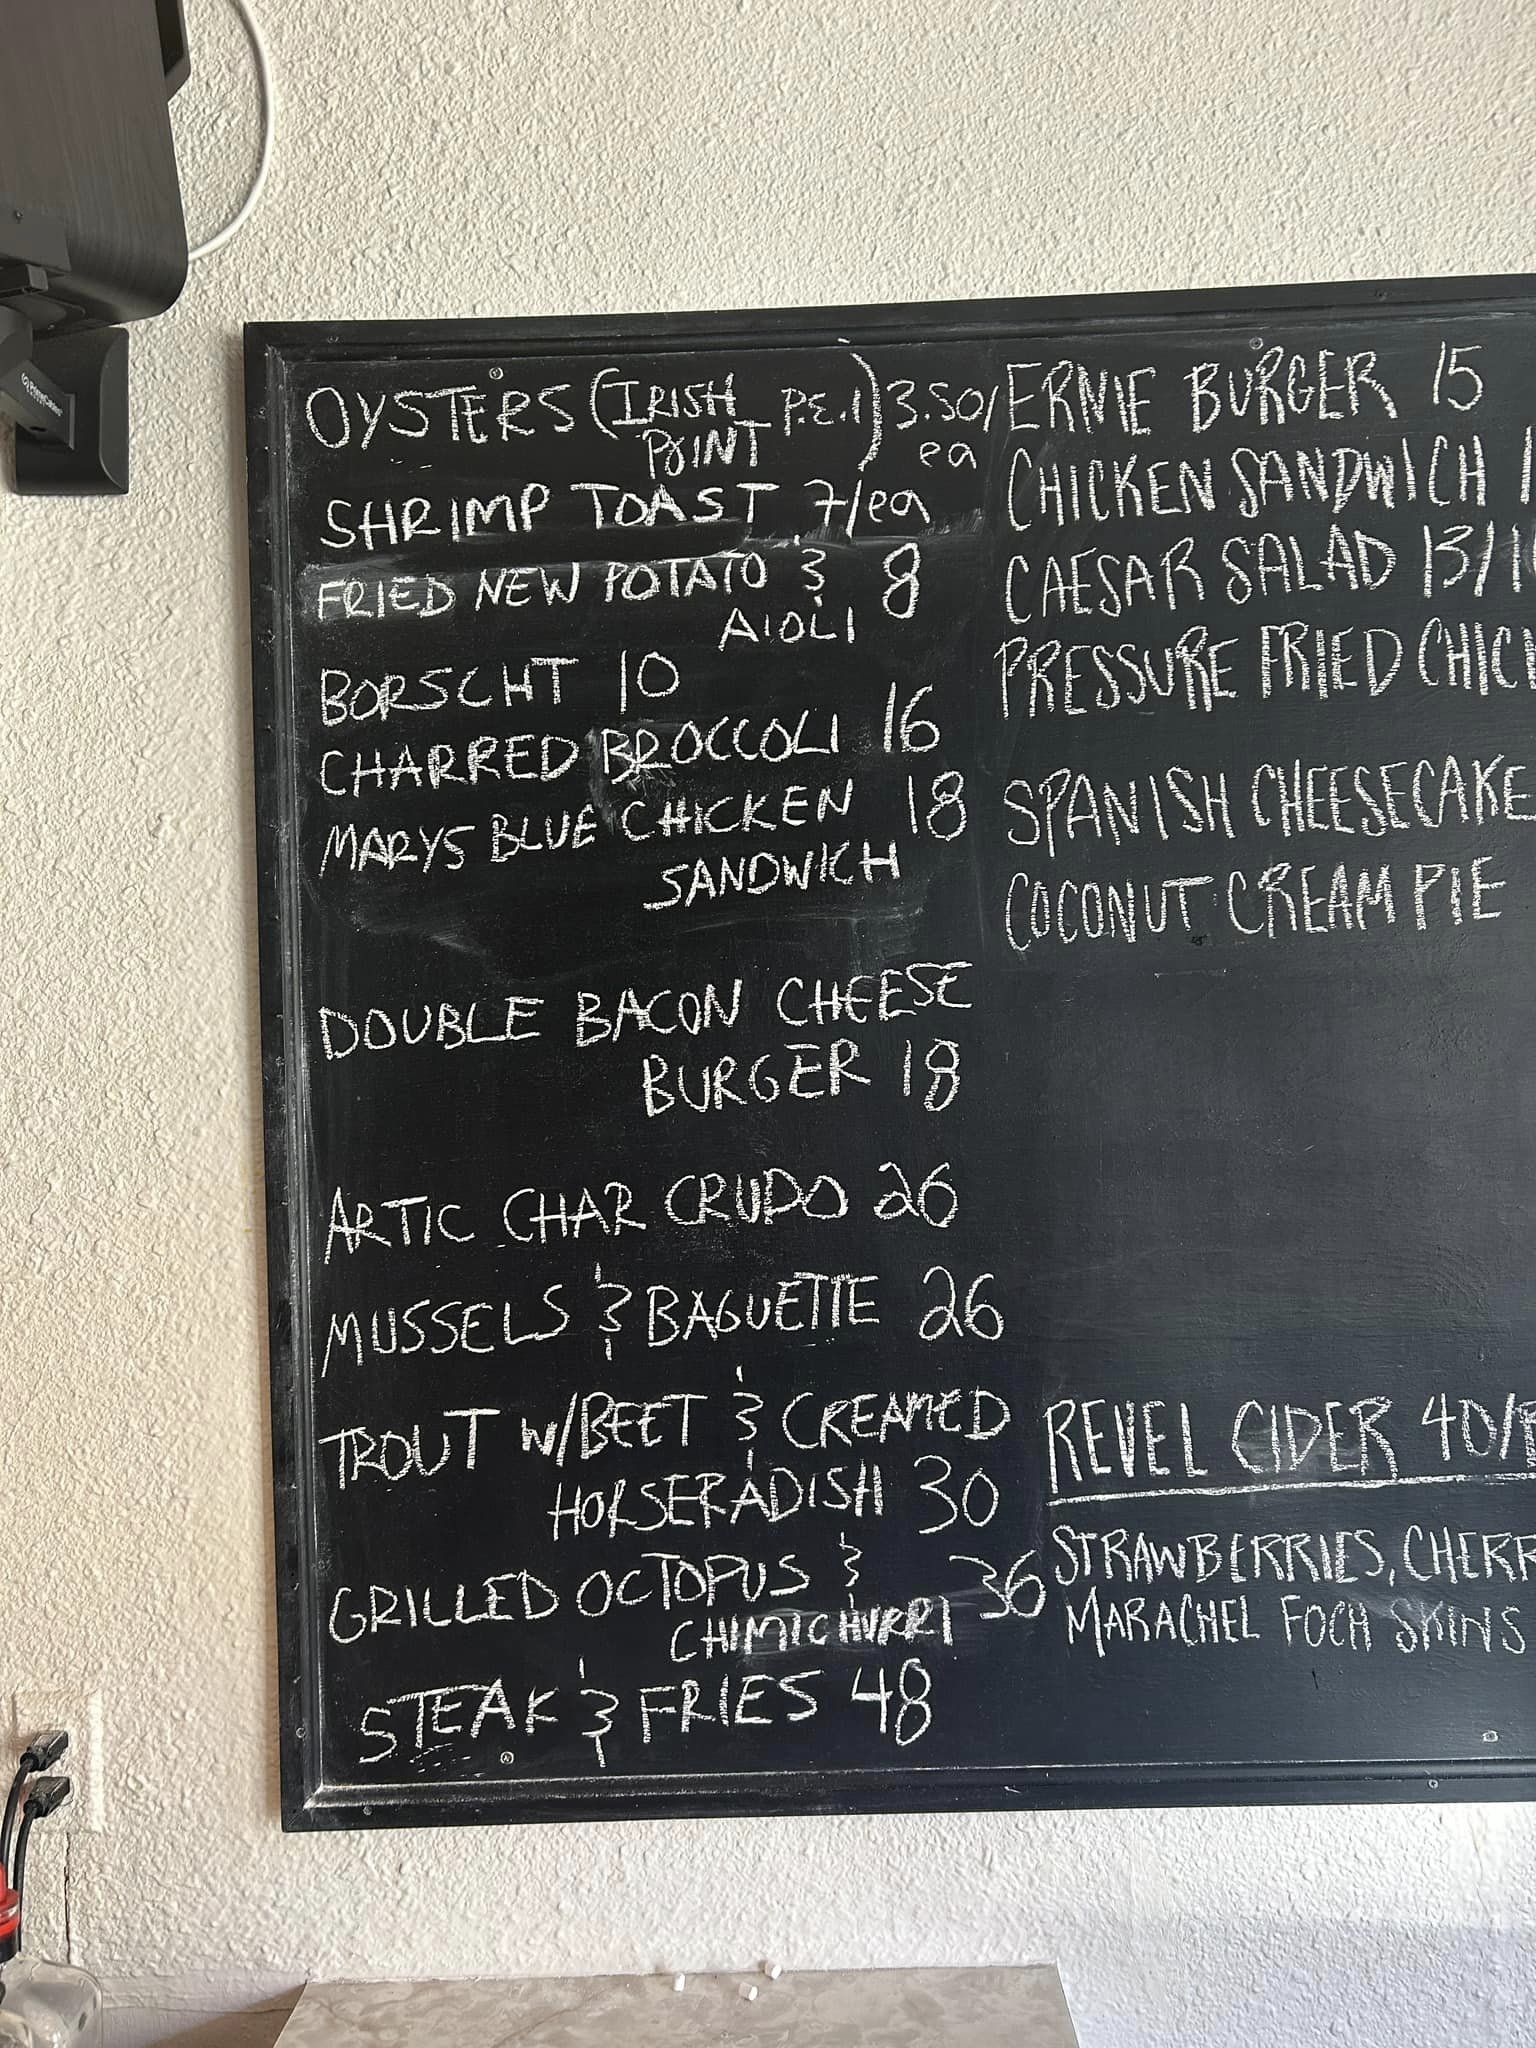 OYSTERS (IRISH P.E.I) 3.50/
POINT ea
SHRIMP TOAST 7/ea
FRIED NEW POTATO & 8
AIOLI
BORSCHT 10
CHARRED BROCCOLI 16
MARYS BLUE CHICKEN 18
SANDWICH
DOUBLE BACON CHEESE
BURGER 18
ARTIC CHAR CRUDO 26
MUSSELS & BAGUETTE 26
TROUT W/BEET & CREAMED
HORSERADISH 30
GRILLED OCTOPUS & 36
CHIMICHURRI
STEAK & FRIES 48
ERNIE BURGER 15
CHICKEN SANDWICH 1
CAESAR SALAD 13/1
PRESSURE FRIED CHIC
SPANISH CHEESECAKE
COCONUT CREAM PIE
REVEL CIDER 40/
STRAWBERRIES, CHERR
MARACHEL FOCH SKINS